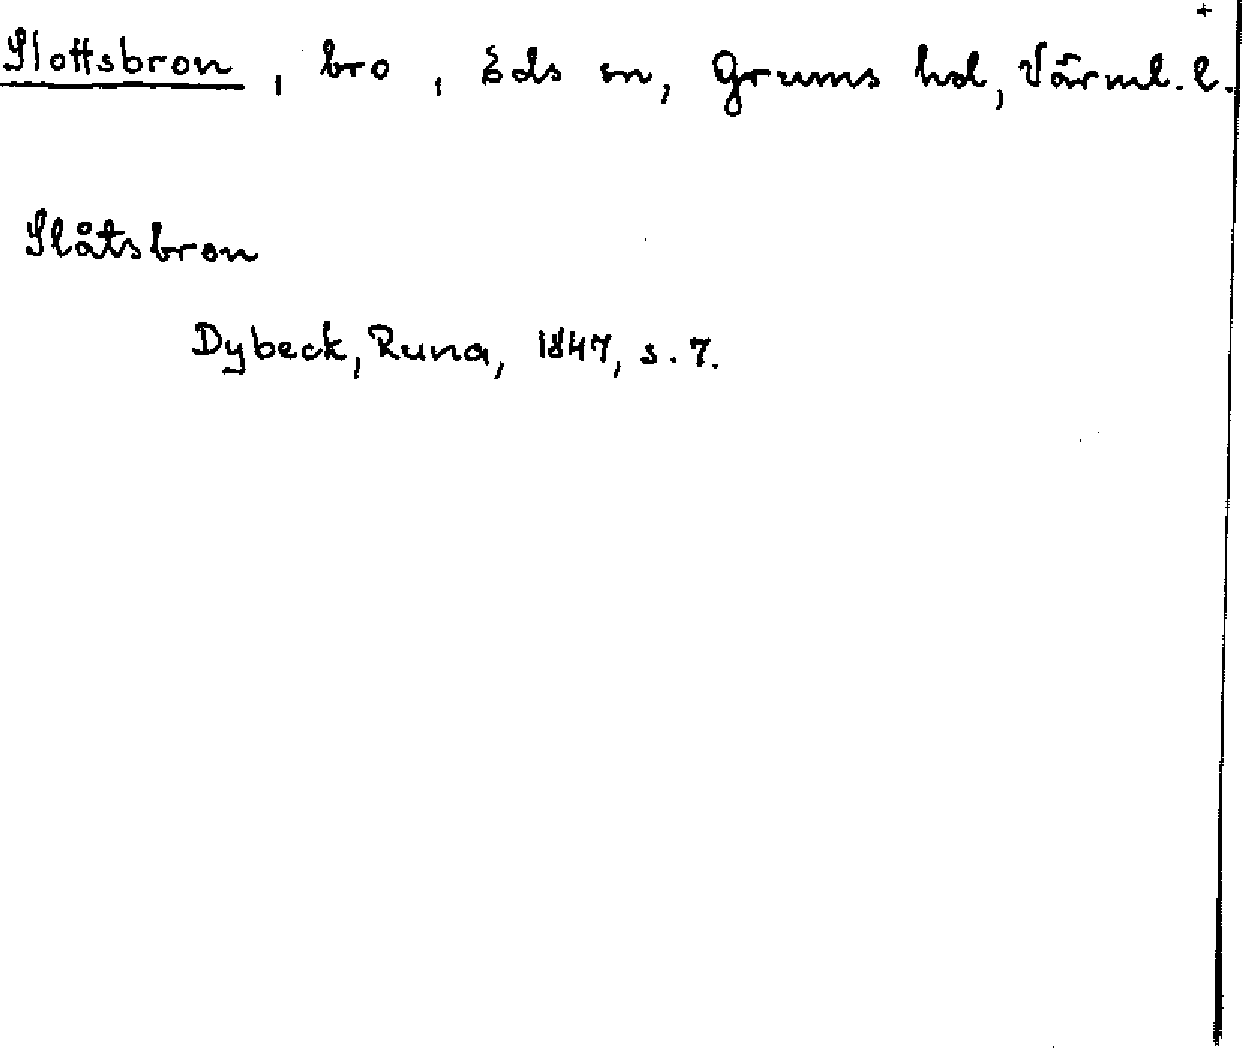 +
Slottsbron, bro, Eds sn, Grums hd, Värml. l.
Slåtsbron
Dybeck, Runa, 1847, s. 7.